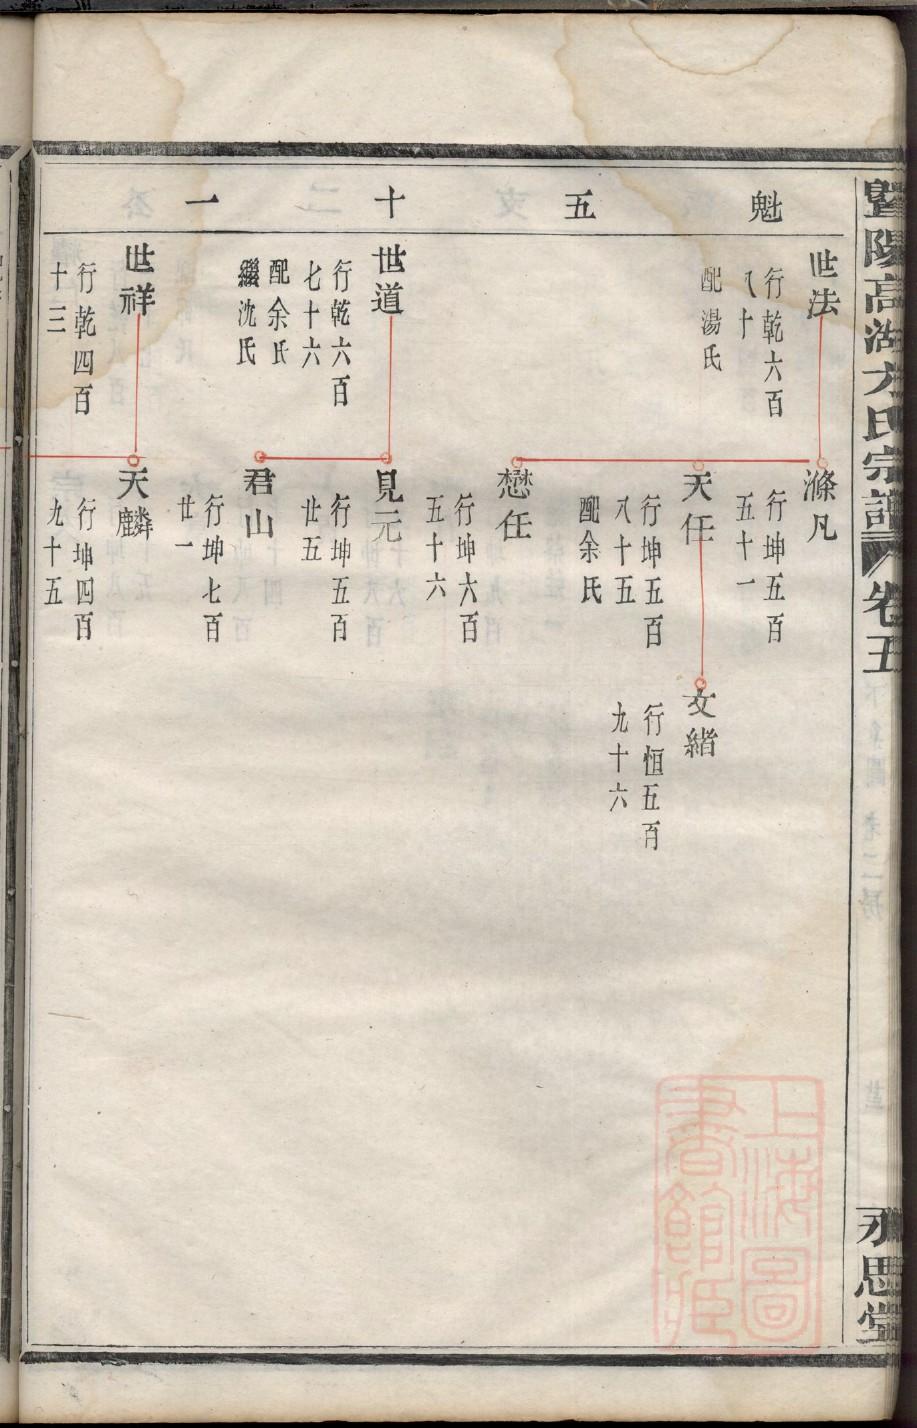 暨陽高湖方氏宗譜
卷五
永思堂
魁五十一
世法
行乾六百
八十
配湯氏
世道
行乾六百
七十六
配余氏
繼沈氏
世祥
行乾四百
十三
滌凡
行坤五百
五十一
天任
行坤五百
八十五
配余氏
懋任
行坤六百
五十六
見元
行坤五百
廿五
君山
行坤七百
廿一
天麟
行坤四百
九十五
文緒
行恒五百
九十六
上海圖
書館藏